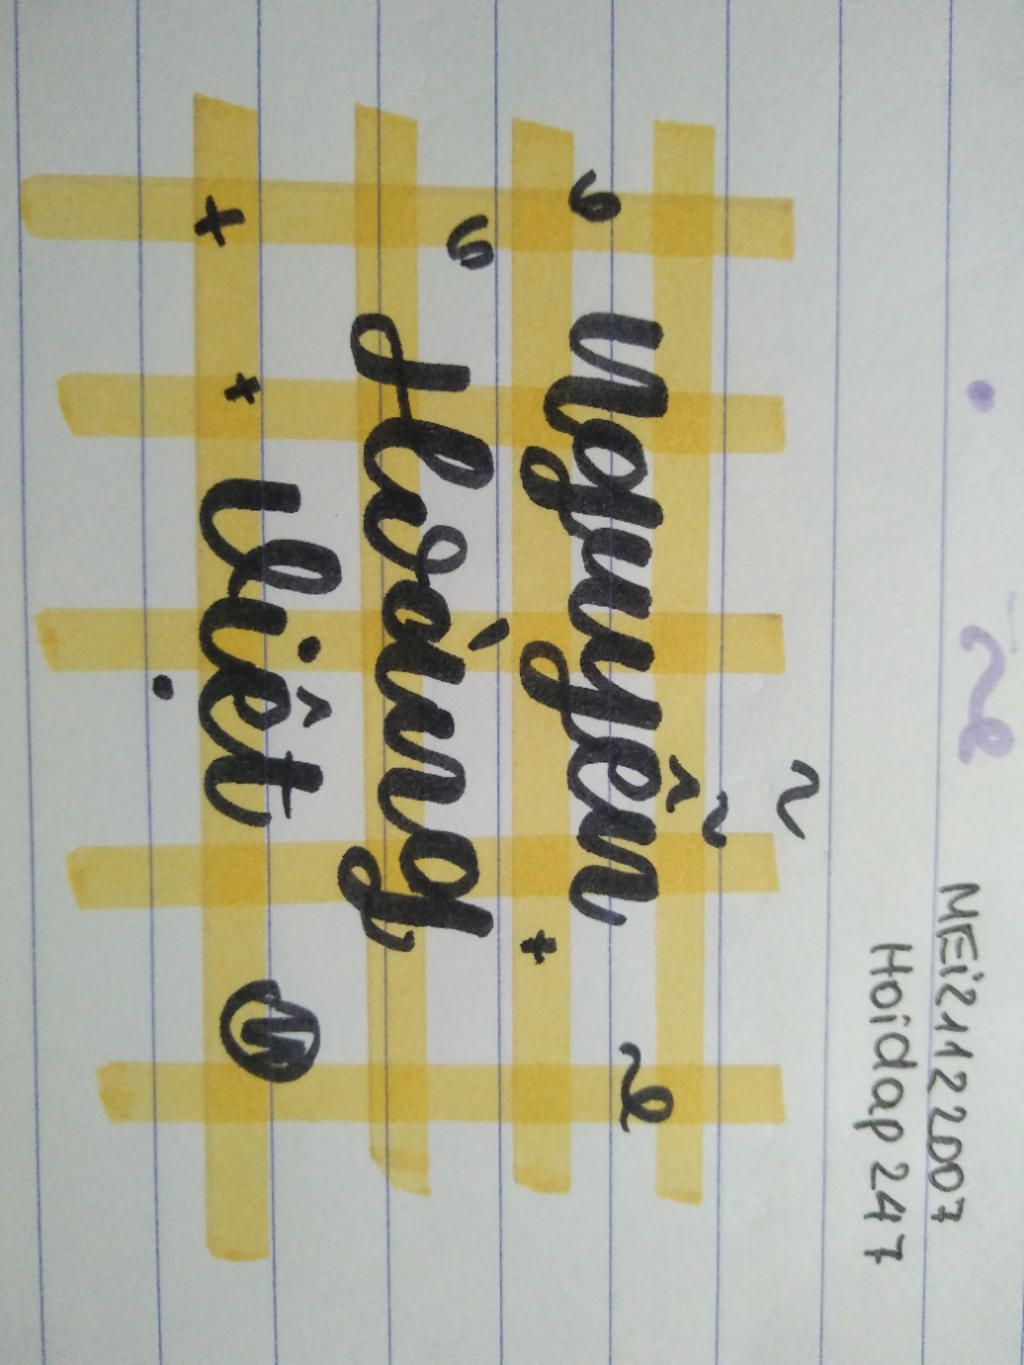 MEi21122007
Hoidap 247
Nguyễn
Hoàng
Việt